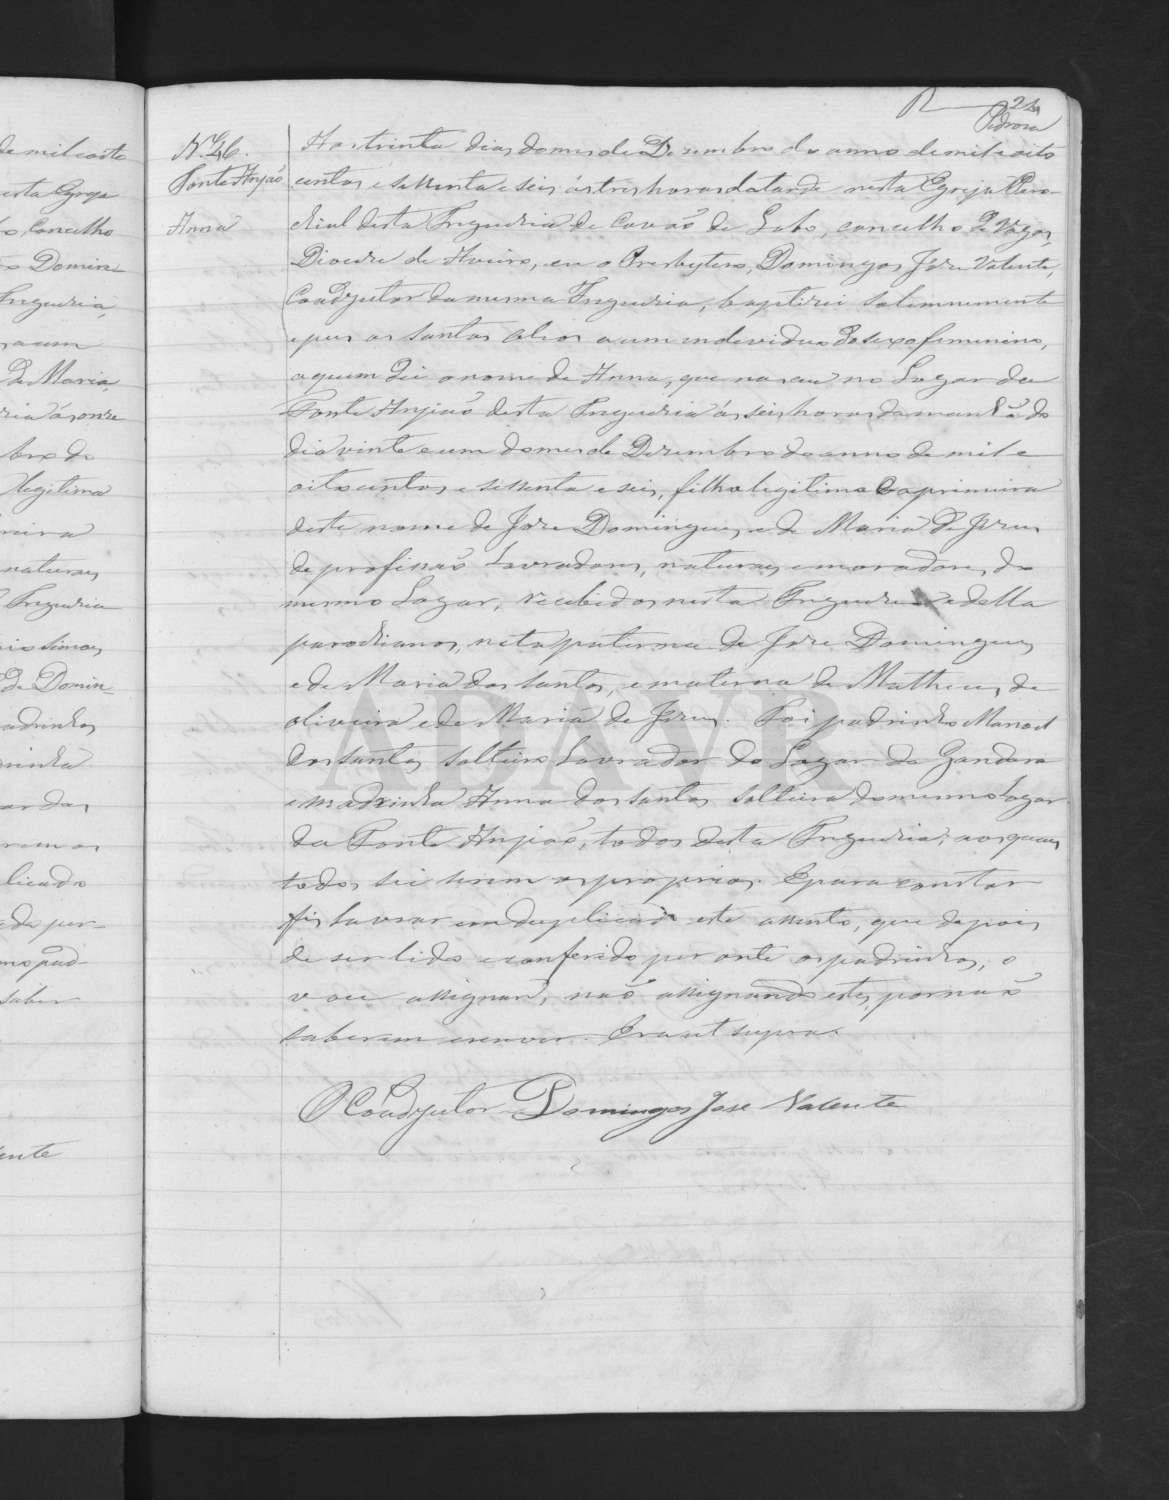 24
Pedrosa
Nº 46.
Fonte Anjiaõ
Anna
Aos trinta dias do mes de Dezembro do anno de mil e oito
centos e sessenta e seis ás tres horas da tarde nesta Egreja Paro-
chial desta Freguezia de Covaõ de Lobo, concelho de Vagos,
Diocese de Aveiro, eu o Presbytero, Domingos Jose Valente,
Coadjutor da mesma Freguezia, baptizei solemnemente
e pus os santos oleos a um individuo do sexo femenino,
a quem dei o nome de Anna, que nasceu no Lugar da
Fonte Anjiaõ desta Freguezia ás seis horas da manhã do
dia vinte e um do mes de Dezembro do anno de mil e
oitocentos e sessenta e seis, filha legitima e a primeira
deste nome de Jose Domingues, e de Maria de Jesus
de profissaõ Lavradores, naturaes e moradores, do
mesmo Lugar, recebidos nesta Freguezia e della
parochianos, neta paterna de Jose Domingues
e de Maria dos Santos, e materna de Matheus, de
oliveira e de Maria de Jesus. Foi padrinho Manoel
dos Santos solteiro Lavrador do Lugar da Gandara
e madrinha Anna dos Santos solteira do mesmo Lugar
da Fonte Anjiaõ, todos desta Freguezia, aos quaes
todos sei serem os proprios. E para constar
fis lavrar em duplicado este assento, que depois
de ser lido e conferido perante os padrinhos, o
vou assignar, naõ assignando estes, por naõ
saberem escrever. Era ut supra.
O Coadjutor Domingos Jose Valente
de mil e oito
nesta Egreja
Concelho
Domin-
Freguezia,
a um
de Maria
ás onze
bro do
legitima
naturaes
Freguezia
simos
de Domin-
padrinhos
drinha
ar das
rem os
licado
do per-
mo pad-
saber
ente
ADAVR